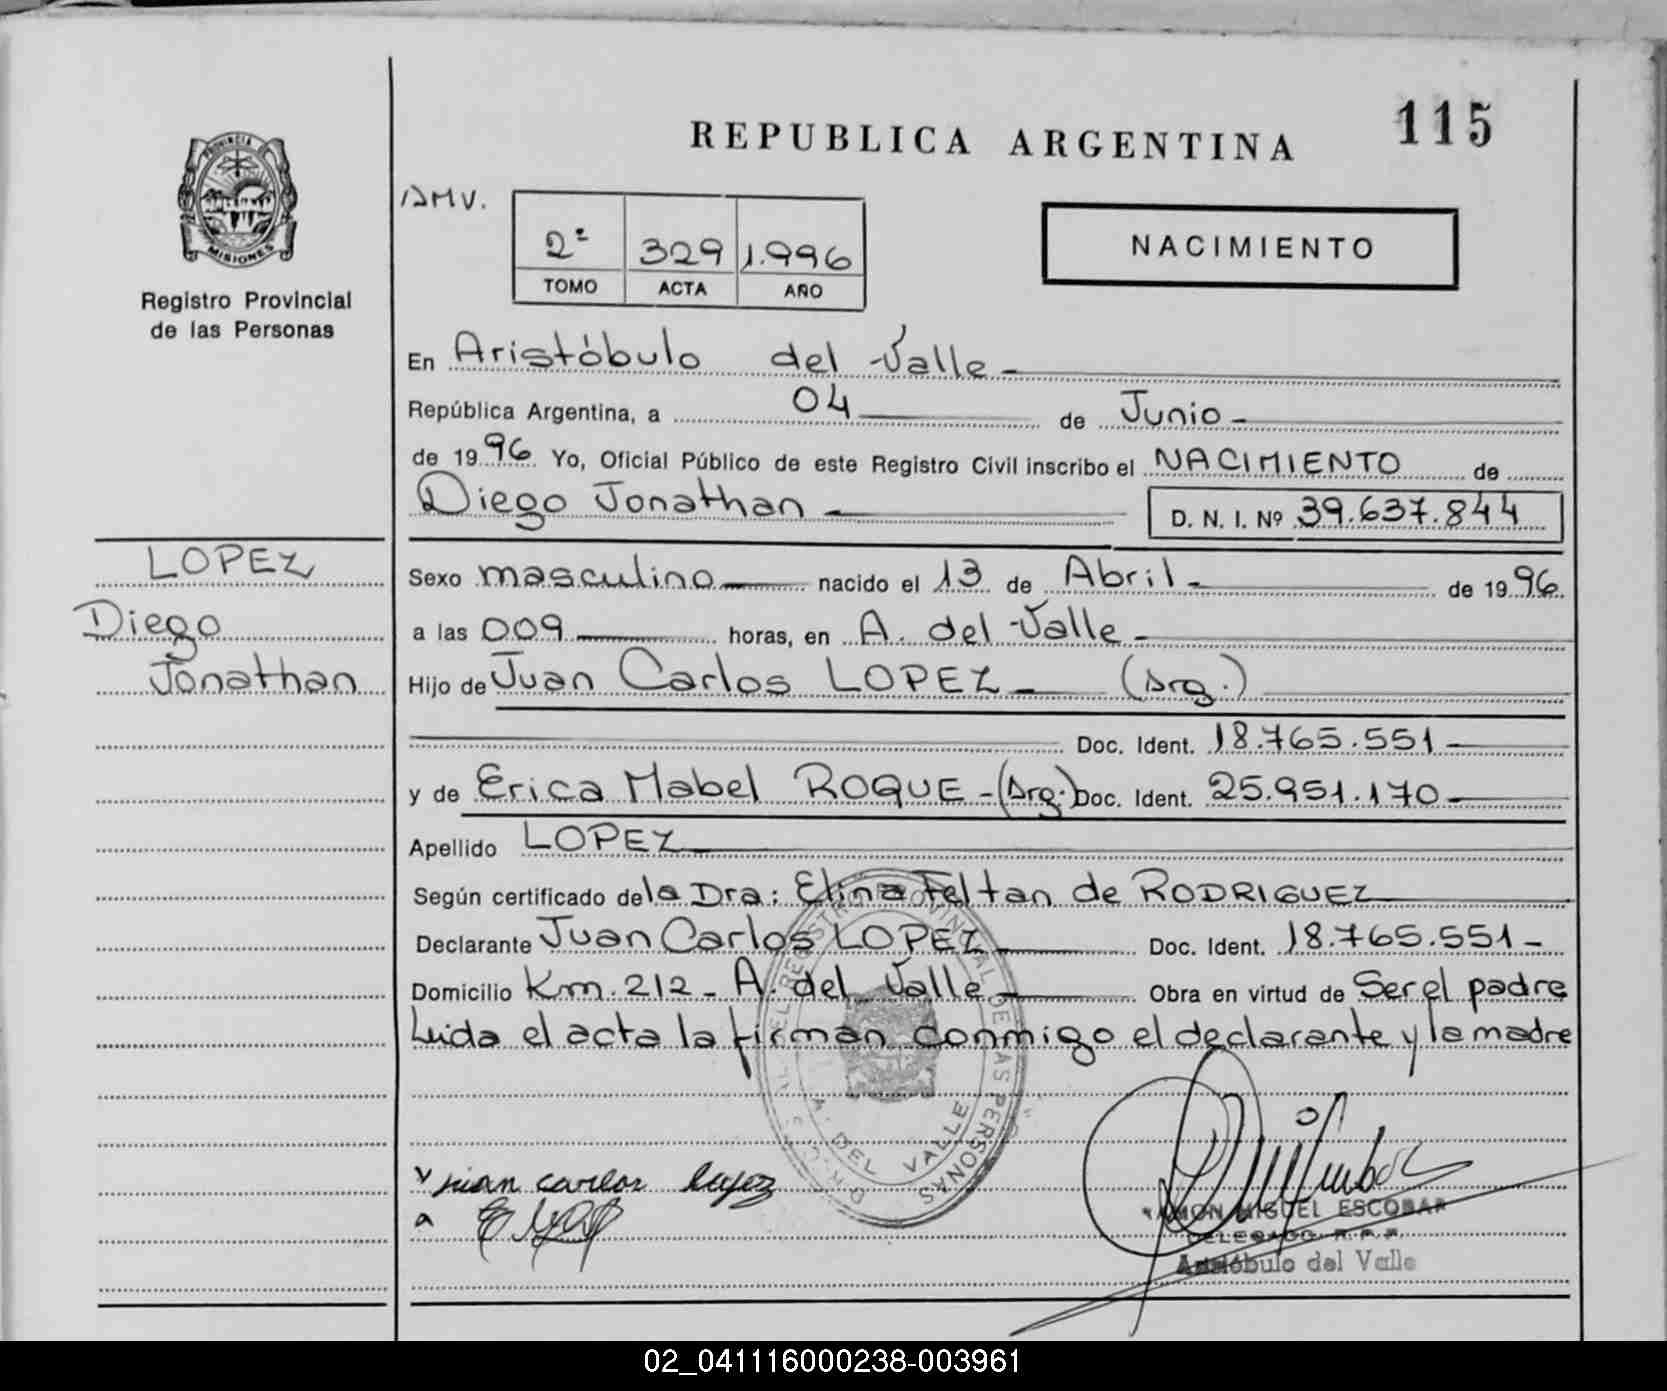 REPUBLICA ARGENTINA
115
PROVINCIA
MISIONES
Registro Provincial
de las Personas
AMV.
2º 329 1.996
TOMO ACTA AÑO
NACIMIENTO
En Aristóbulo del Valle
República Argentina, a 04 de Junio
de 1996 Yo, Oficial Público de este Registro Civil inscribo el NACIMIENTO de
Diego Jonathan D. N. I. Nº 39.637.844
LOPEZ
Diego
Jonathan
Sexo masculino nacido el 13 de Abril de 1996
a las 009 horas, en A. del Valle
Hijo de Juan Carlos LOPEZ (Arg.)
Doc. Ident. 18.765.551
y de Erica Mabel ROQUE - (Arg.) Doc. Ident. 25.951.170
Apellido LOPEZ
Según certificado de la Dra: Elina Feltan de RODRIGUEZ
Declarante Juan Carlos LOPEZ Doc. Ident. 18.765.551
Domicilio Km. 212 - A. del Valle Obra en virtud de Ser el padre
Leida el acta la firman conmigo el declarante y la madre
REGISTRO PROVINCIAL DE LAS PERSONAS
A. DEL VALLE
juan carlos lopez
RAMON MIGUEL ESCOBAR
DELEGADO R.P.P.
Aristóbulo del Valle
02_041116000238-003961